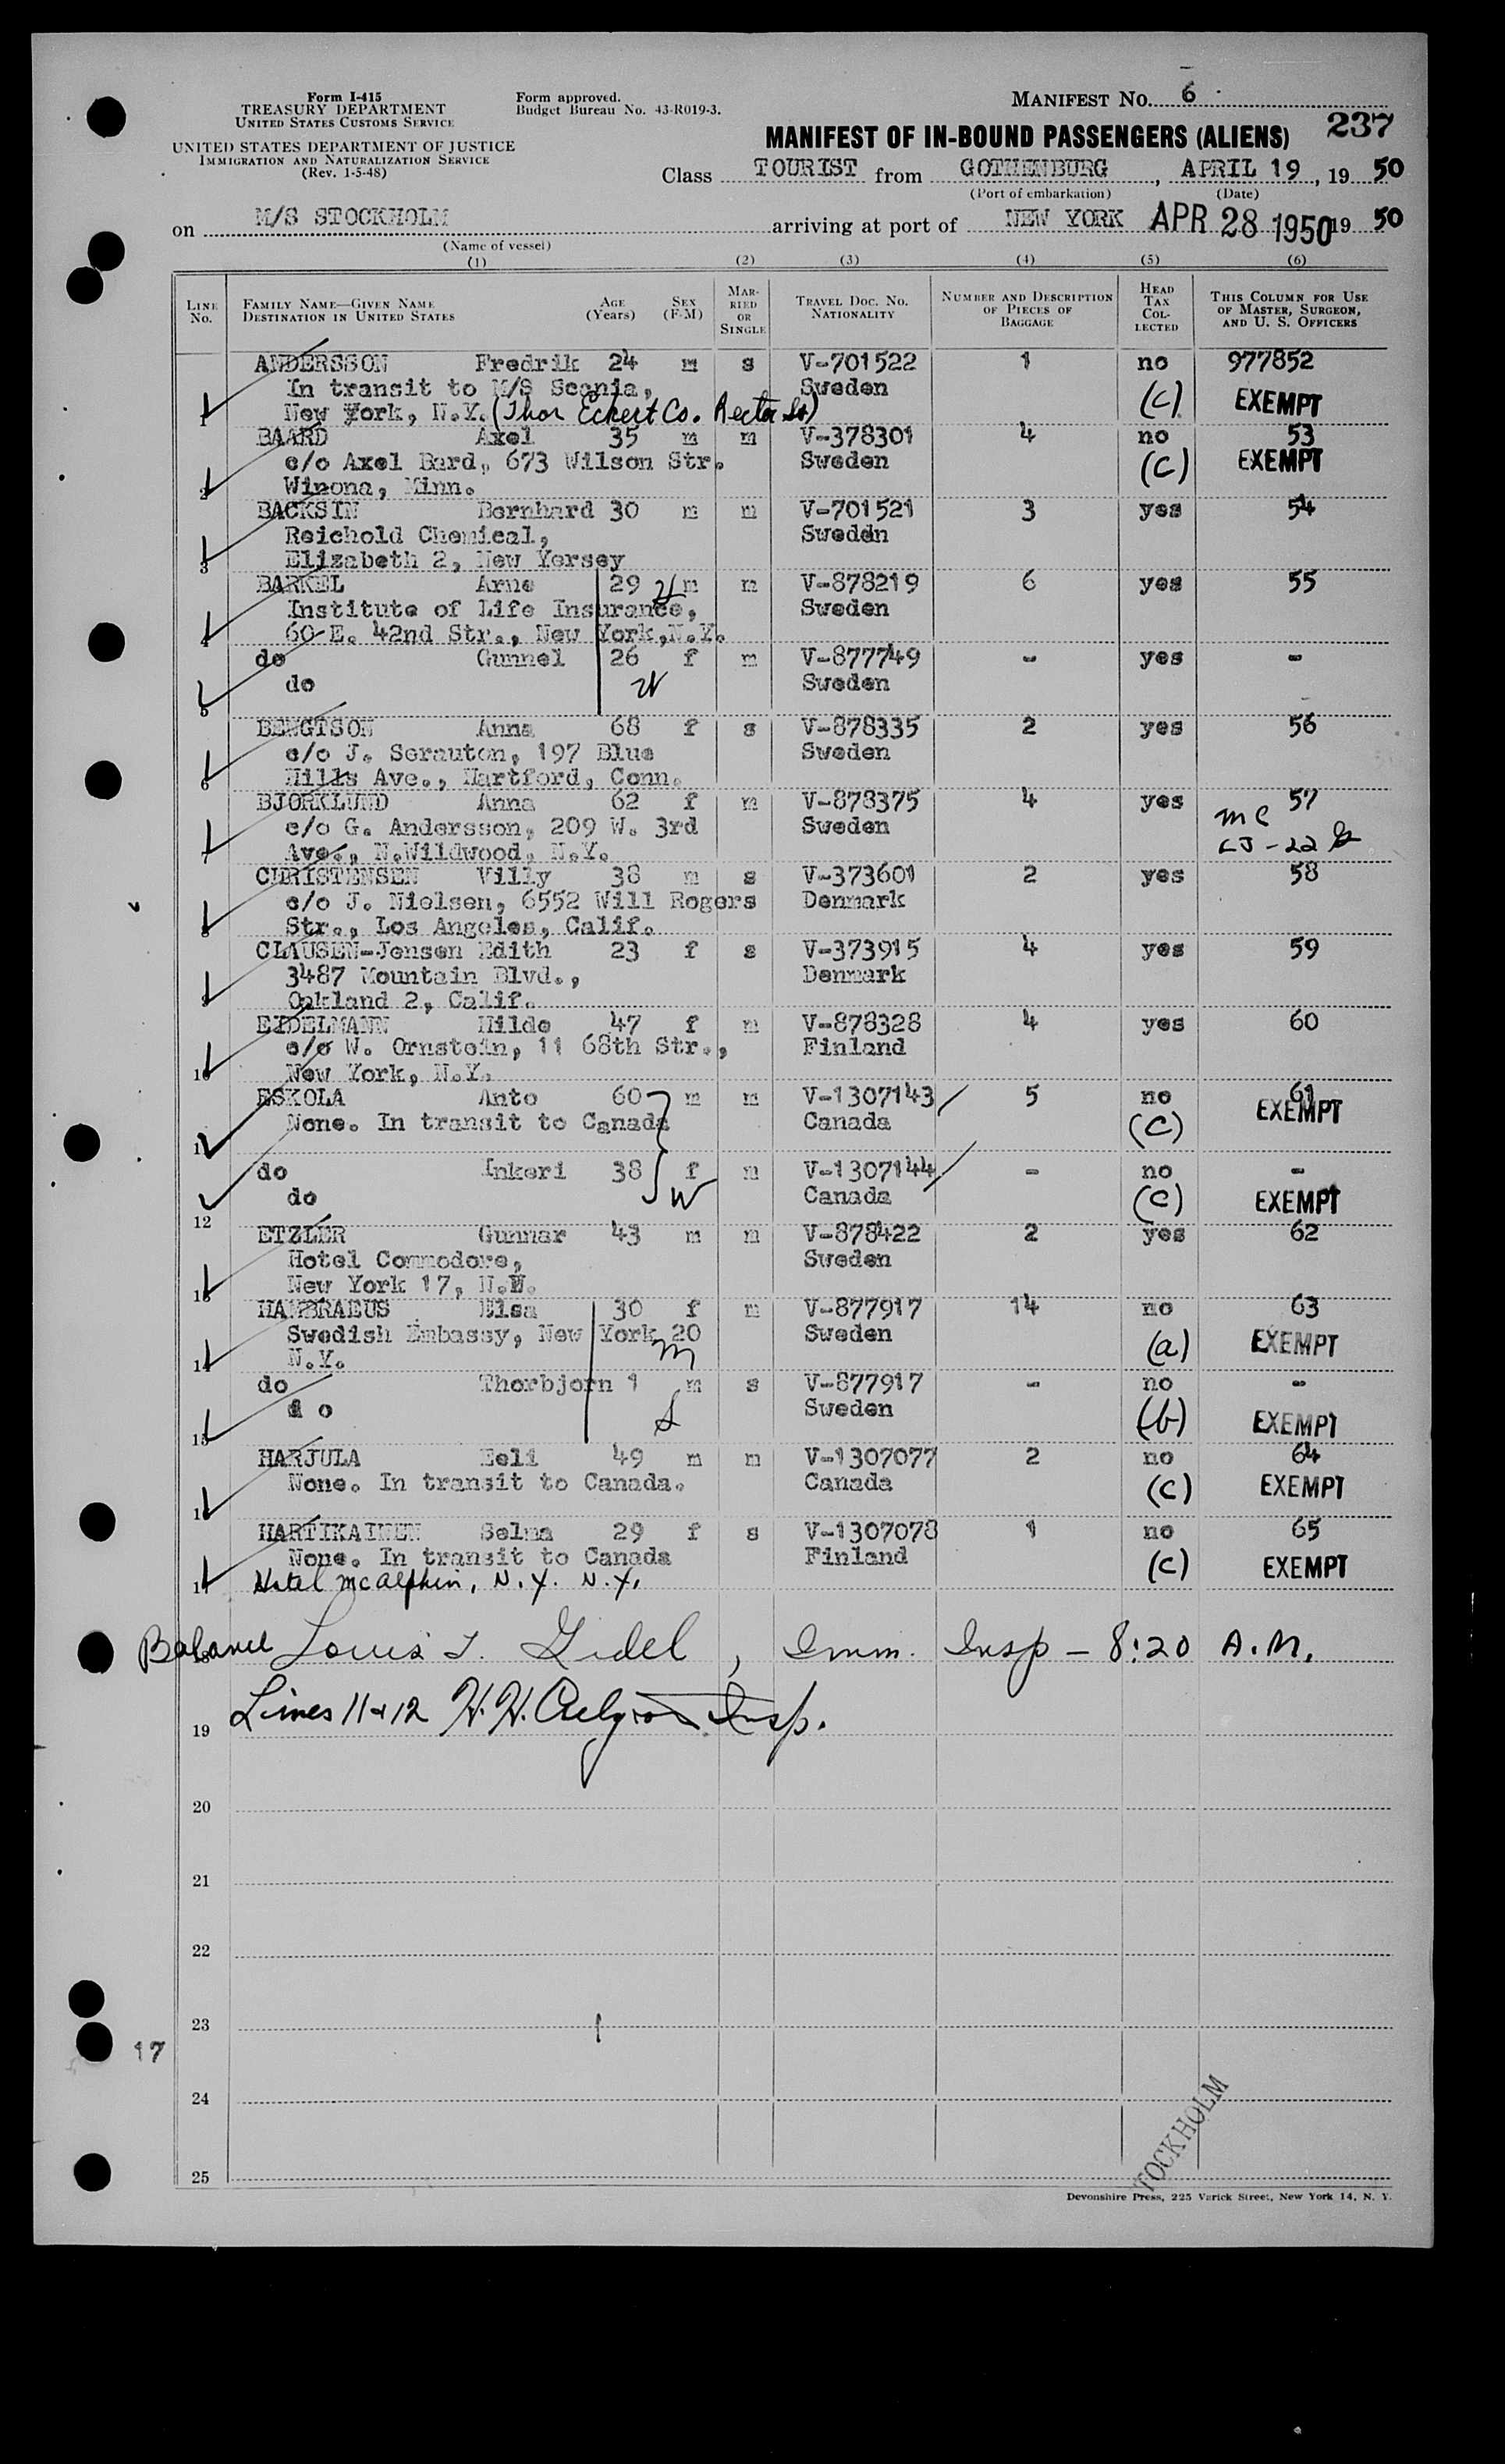 Form I-415
TREASURY DEPARTMENT
UNITED STATES CUSTOMS SERVICE
UNITED STATES DEPARTMENT OF JUSTICE
IMMIGRATION AND NATURALIZATION SERVICE
(Rev. 1-5-48)
Form approved.
Budget Bureau No. 43-R019-3.
MANIFEST No. 6
237
MANIFEST OF IN-BOUND PASSENGERS (ALIENS)
Class TOURIST from GOTHENBURG, APRIL 19, 19 50
(Port of embarkation) (Date)
on M/S STOCKHOLM arriving at port of NEW YORK APR 28 1950 19 50
(Name of vessel)
(1) (2) (3) (4) (5) (6)
LINE No. FAMILY NAME—GIVEN NAME DESTINATION IN UNITED STATES AGE (Years) SEX (F-M) MARRIED OR SINGLE TRAVEL DOC. NO. NATIONALITY NUMBER AND DESCRIPTION OF PIECES OF BAGGAGE HEAD TAX COLLECTED THIS COLUMN FOR USE OF MASTER, SURGEON, AND U. S. OFFICERS
ANDERSSON Fredrik 24 m s V-701522 1 no 977852
In transit to M/S Scania, Sweden (c) EXEMPT
1 New York, N.Y. (Thor Eckert Co. Rector St)
BAARD Axel 35 m m V-378301 4 no 53
c/o Axel Bard, 673 Wilson Str. Sweden (c) EXEMPT
2 Winona, Minn.
BACKSIN Bernhard 30 m m V-701521 3 yes 54
Reichold Chemical, Sweden
3 Elizabeth 2, New Yersey
BARKEL Arne 29 m m V-878219 6 yes 55
Institute of Life Insurance, Sweden
4 60 E. 42nd Str., New York, N.Y.
do Gunnel 26 f m V-877749 - yes -
do W Sweden
5
BENGTSON Anna 68 f s V-878335 2 yes 56
c/o J. Serauton, 197 Blue Sweden
6 Hills Ave., Hartford, Conn.
BJORKLUND Anna 62 f m V-878375 4 yes 57
c/o G. Andersson, 209 W. 3rd Sweden mc
7 Ave., N.Wildwood, N.Y.
CHRISTENSEN Villy 38 m s V-373601 2 yes 58
c/o J. Nielsen, 6552 Will Rogers Denmark
8 Str., Los Angeles, Calif.
CLAUSEN-Jensen Edith 23 f s V-373915 4 yes 59
3487 Mountain Blvd., Denmark
9 Oakland 2, Calif.
EIDELMANN Hilde 47 f m V-878328 4 yes 60
c/o W. Ornstein, 11 68th Str., Finland
10 New York, N.Y.
ESKOLA Anto 60 m m V-1307143 5 no 61
None. In transit to Canada Canada (c) EXEMPT
11
do Inkeri 38 f m V-1307144 - no -
do W Canada (c) EXEMPT
12
ETZLER Gunnar 43 m m V-878422 2 yes 62
Hotel Commodore, Sweden
13 New York 17, N.Y.
HAMBRAEUS Elsa 30 f m V-877917 14 no 63
Swedish Embassy, New York 20 Sweden (a) EXEMPT
14 N.Y. m
do Thorbjorn 1 m s V-877917 - no -
do S Sweden (b) EXEMPT
15
HARJULA Eeli 49 m m V-1307077 2 no 64
None. In transit to Canada. Canada (c) EXEMPT
16
HARTIKAINEN Selma 29 f s V-1307078 1 no 65
None. In transit to Canada Finland (c) EXEMPT
17 Hotel McAlphin, N.Y. N.Y.
18 Balance Louis I. Gidel, Imm. Insp - 8:20 A.M.
19 Lines 11+12 H.H. Insp.
20
21
22
23
17
24
25
STOCKHOLM
Devonshire Press, 225 Varick Street, New York 14, N. Y.